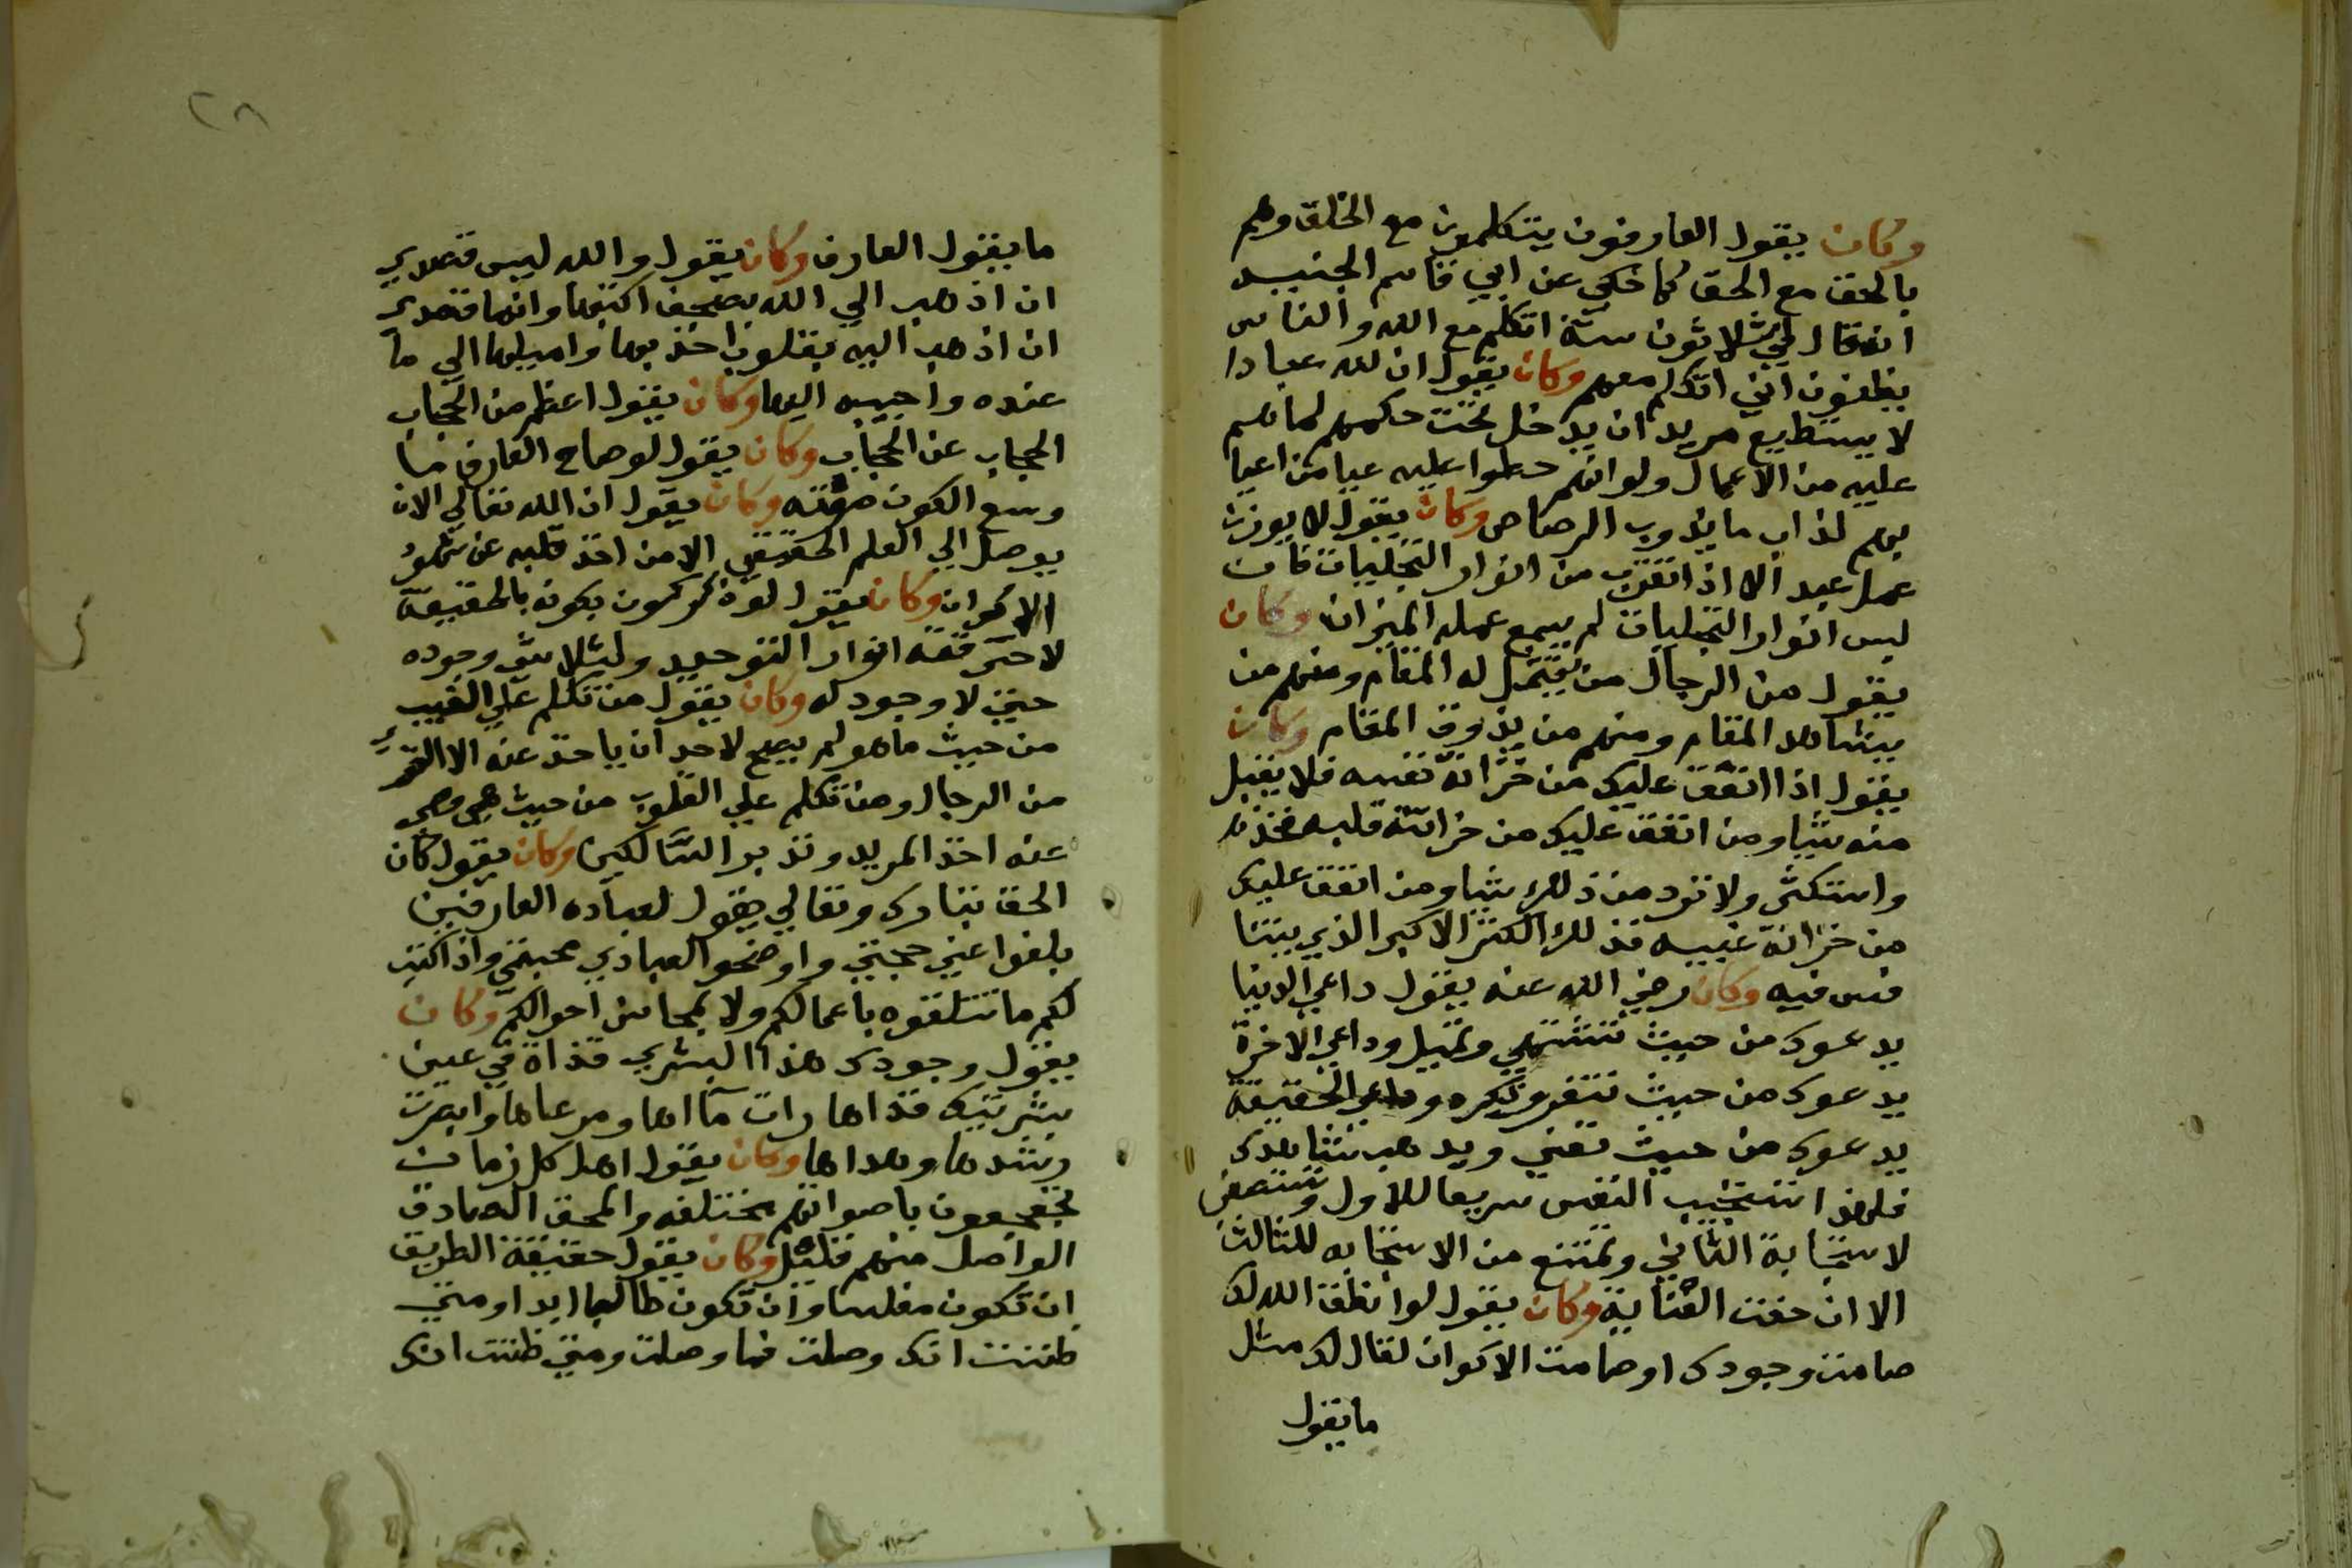 وكان يقول العارفون يتكلمون مع الخلق وهم
بالحق مع الحق كما حكي عن ابي قاسم الجنيد
انه قال لي ثلاثون سنة اتكلم مع الله والناس
يظنون انني اتكلم معهم وكان يقول ان لله عبادا
لا يستطيع مريد ان يدخل تحت حكمهم لما هم
عليه من الاعمال ولو انهم حطوا عليه عبا من اعبا
بهم لذاب ما يذوب الرصاص وكان يقول لا يوزن
عمل عبد الا اذا اقترب من انوار التجليات فان
لبس انوار التجليات لم يسع عمله الميزان وكان
يقول من الرجال من يتمثل له المقام ومنهم من
يشاهد المقام ومنهم من يذوق المقام وكان
يقول اذا انفق عليك من خزانة نفسه فلا يقبل
منه شيا ومن انفق عليك من خزانة قلبه فخذ
واستكثر ولا ترد من ذلك شيا ومن انفق عليك
من خزانة غيبه فذلك الكنز الاكبر الذي يتنا
فس فيه وكان رضي الله عنه يقول داعي الدنيا
يدعوك من حيث تشتهي وتميل وداعي الاخرة
يدعوك من حيث تنفر وتكره وداعي الحقيقة
يدعوك من حيث تفني ويذهب شاهدك
فلهذا تستجيب النفس سريعا للاول وتستعصي
لاستجابة الثاني وتمتنع من الاستجابه للثالث
الا ان حفت العناية وكان يقول لو انطق الله لك
صامت وجودك او صامت الاكوان لقال لك مثل
ما يقول
٢٨
ما يقول العارف وكان يقول والله ليس قصدي
ان اذهب الي الله بصحف اكتبها وانما قصدي
ان اذهب اليه بقلوب اخذ بها واميلها الي ما
عنده واحببه اليها وكان يقول اعظم من الحجاب
الحجاب عن الحجاب وكان يقول لو صاح العارف ما
وسع الكون صوته وكان يقول ان الله تعالي الان
يوصل الي العلم الحقيقي الا من اخذ قلبه عن شهود
الاكوان وكان يقول لو ذكر كون بكونه بالحقيقة
لاحترقته انوار التوحيد ولتلاشي وجوده
حتي لا وجود له وكان يقول من تكلم علي الغيب
من حيث ما هو لم يصح لاحد ان ياخذ عنه الا
من الرجال ومن تكلم علي القلوب من حيث هي وهي
عنه اخذ المريد وتدبر السالكين وكان يقول كان
الحق تبارك وتعالي يقول لعباده العارفين
بلغوا عني حجتي واوضحوا لعبادي محبتي واذا كنت
لكم ما تتلقوه باعمالكم ولا بمحاسن احوالكم وكان
يقول وجودك هذا البشري قذاة في عين
بشريتك قذاها رات ماها ومرعاها وابصرت
رشدها وهداها وكان يقول اهل كل زمان
يجعجعون باصواتهم مختلفه والمحق الصادق
الواصل منهم قليل وكان يقول حقيقة الطريق
ان تكون مفلسا وان تكون طالبا ابدا ومتي
ظننت انك وصلت فما وصلت ومتي ظننت انك